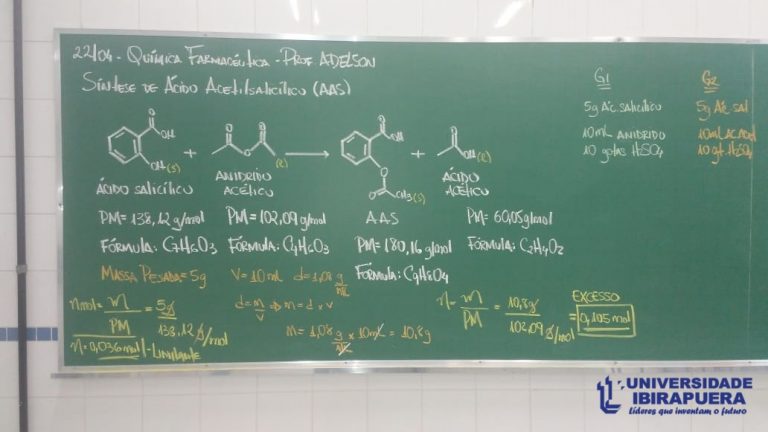 22/04 - Química Farmacêutica - Prof Adelson
Síntese de Ácido Acetilsalicílico (AAS)
O
OH
OH (s)
+
O O
O
(l)
→
O
OH
O
O
CH3 (s)
+
O
OH (l)
Ácido Salicílico
Anidrido Acético
AAS
Ácido Acético
PM= 138,12 g/mol
PM= 102,09 g/mol
PM= 180,16 g/mol
PM= 60,05 g/mol
Fórmula: C7H6O3
Fórmula: C4H6O3
Fórmula: C9H8O4
Fórmula: C2H4O2
Massa Pesada= 5g
V= 10 mL d= 1,08 g/mL
n mol = m/PM = 5g/138,12 g/mol
n= 0,036 mol - Limitante
d= m/V ⇒ m= d x v
m= 1,08 g/mL x 10mL = 10,8g
n= m/PM = 10,8g/102,09 g/mol = 0,105 mol
Excesso
G1
5g Ác. Salicílico
10mL Anidrido
10 gotas H2SO4
G2
5g Ác. Sal
10 gt. H2SO4
UNIVERSIDADE
IBIRAPUERA
Líderes que inventam o futuro